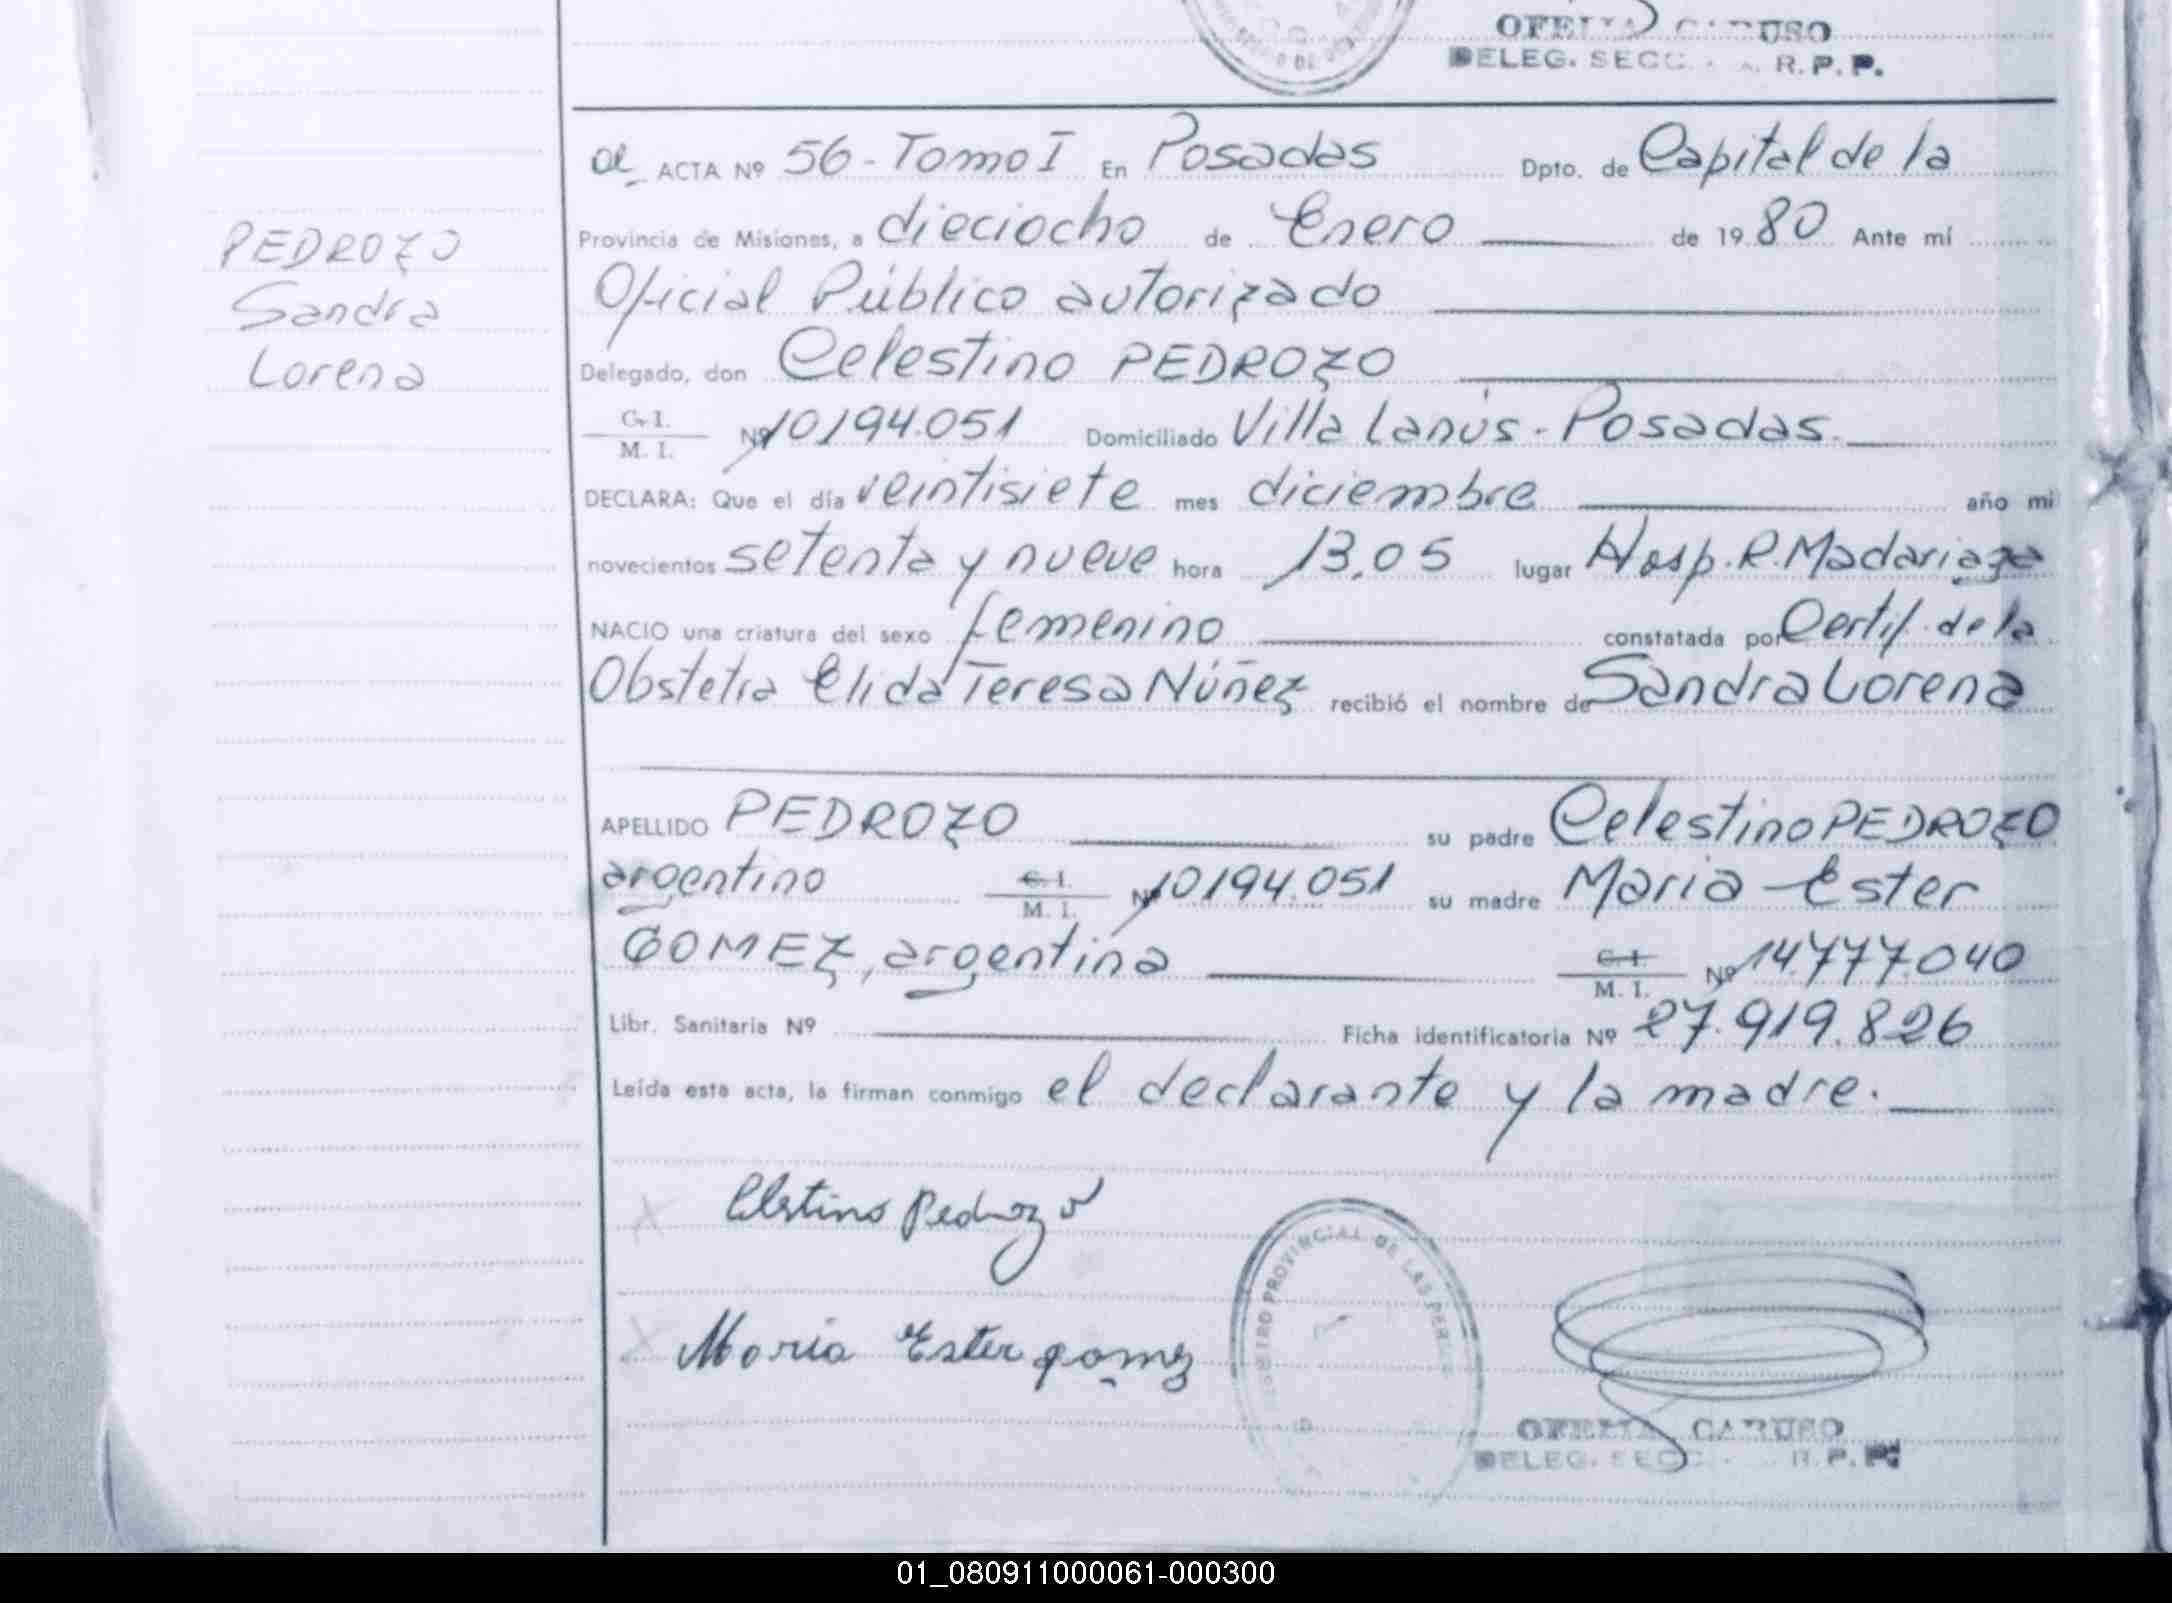 OFELIA CARUSO
DELEG. SECC. R.P.P.
ACTA Nº 56 - Tomo I En Posadas Dpto. de Capital de la
Provincia de Misiones, a dieciocho de Enero de 1980 Ante mí
Oficial Público autorizado
Delegado, don Celestino PEDROZO
C. I.
M. I. Nº 10194.051 Domiciliado Villa Lanús - Posadas.
DECLARA: Que el día veintisiete mes diciembre año mi
novecientos setenta y nueve hora 13,05 lugar Hosp. R. Madariaga
NACIO una criatura del sexo femenino constatada por Certif. de la
Obstetra Elida Teresa Núñez recibió el nombre de Sandra Lorena
PEDROZO
Sandra
Lorena
APELLIDO PEDROZO su padre Celestino PEDROZO
argentino C. I. M. I. Nº 10194.051 su madre Maria Ester
GOMEZ, argentina C. I. M. I. Nº 14.777.040
Libr. Sanitaria Nº Ficha identificatoria Nº 27.919.826
Leída esta acta, la firman conmigo el declarante y la madre.
Celstino Pedrozo
Maria Ester gomez
REGISTRO PROVINCIAL DE LAS PERS
OFELIA CARUSO
DELEG. SECC. R.P.P.
01_080911000061-000300